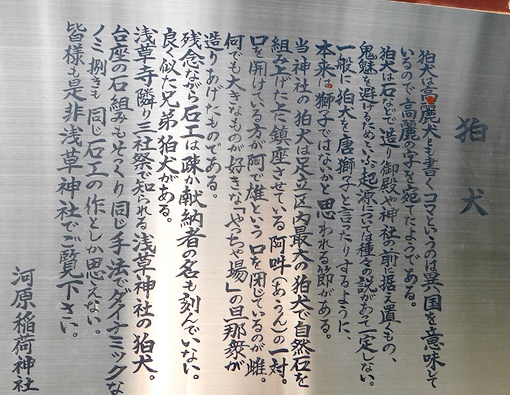 狛犬
狛犬は高麗犬とも書くコマというのは異国を意味して
いるので高麗の字を宛てたようである。
狛犬は石などで造り御殿や神社の前に据え置くもの、
鬼魅を避けるためという。起源については種々の説があって一定しない。
一般に狛犬を唐獅子と言ったりするように、
本来は獅子ではないかと思われる節がある。
当神社の狛犬は足立区内最大の狛犬で自然石を
組み上げた上に鎮座させている阿吽(あうん)の一対。
口を開けている方が阿で雄という口を閉じているのが雌。
何でも大きなものが好きな「やっちゃ場」の旦那衆が
造りあげたものである。
残念ながら石工は疎か献納者の名も刻んでいない。
良く似た兄弟狛犬がある。
浅草寺隣り三社祭で知られる浅草神社の狛犬。
台座の石組みもそっくり同じ手法でダイナミックな
ノミ捌きも同じ石工の作としか思えない。
皆様も是非浅草神社でご覧下さい。
河原稲荷神社